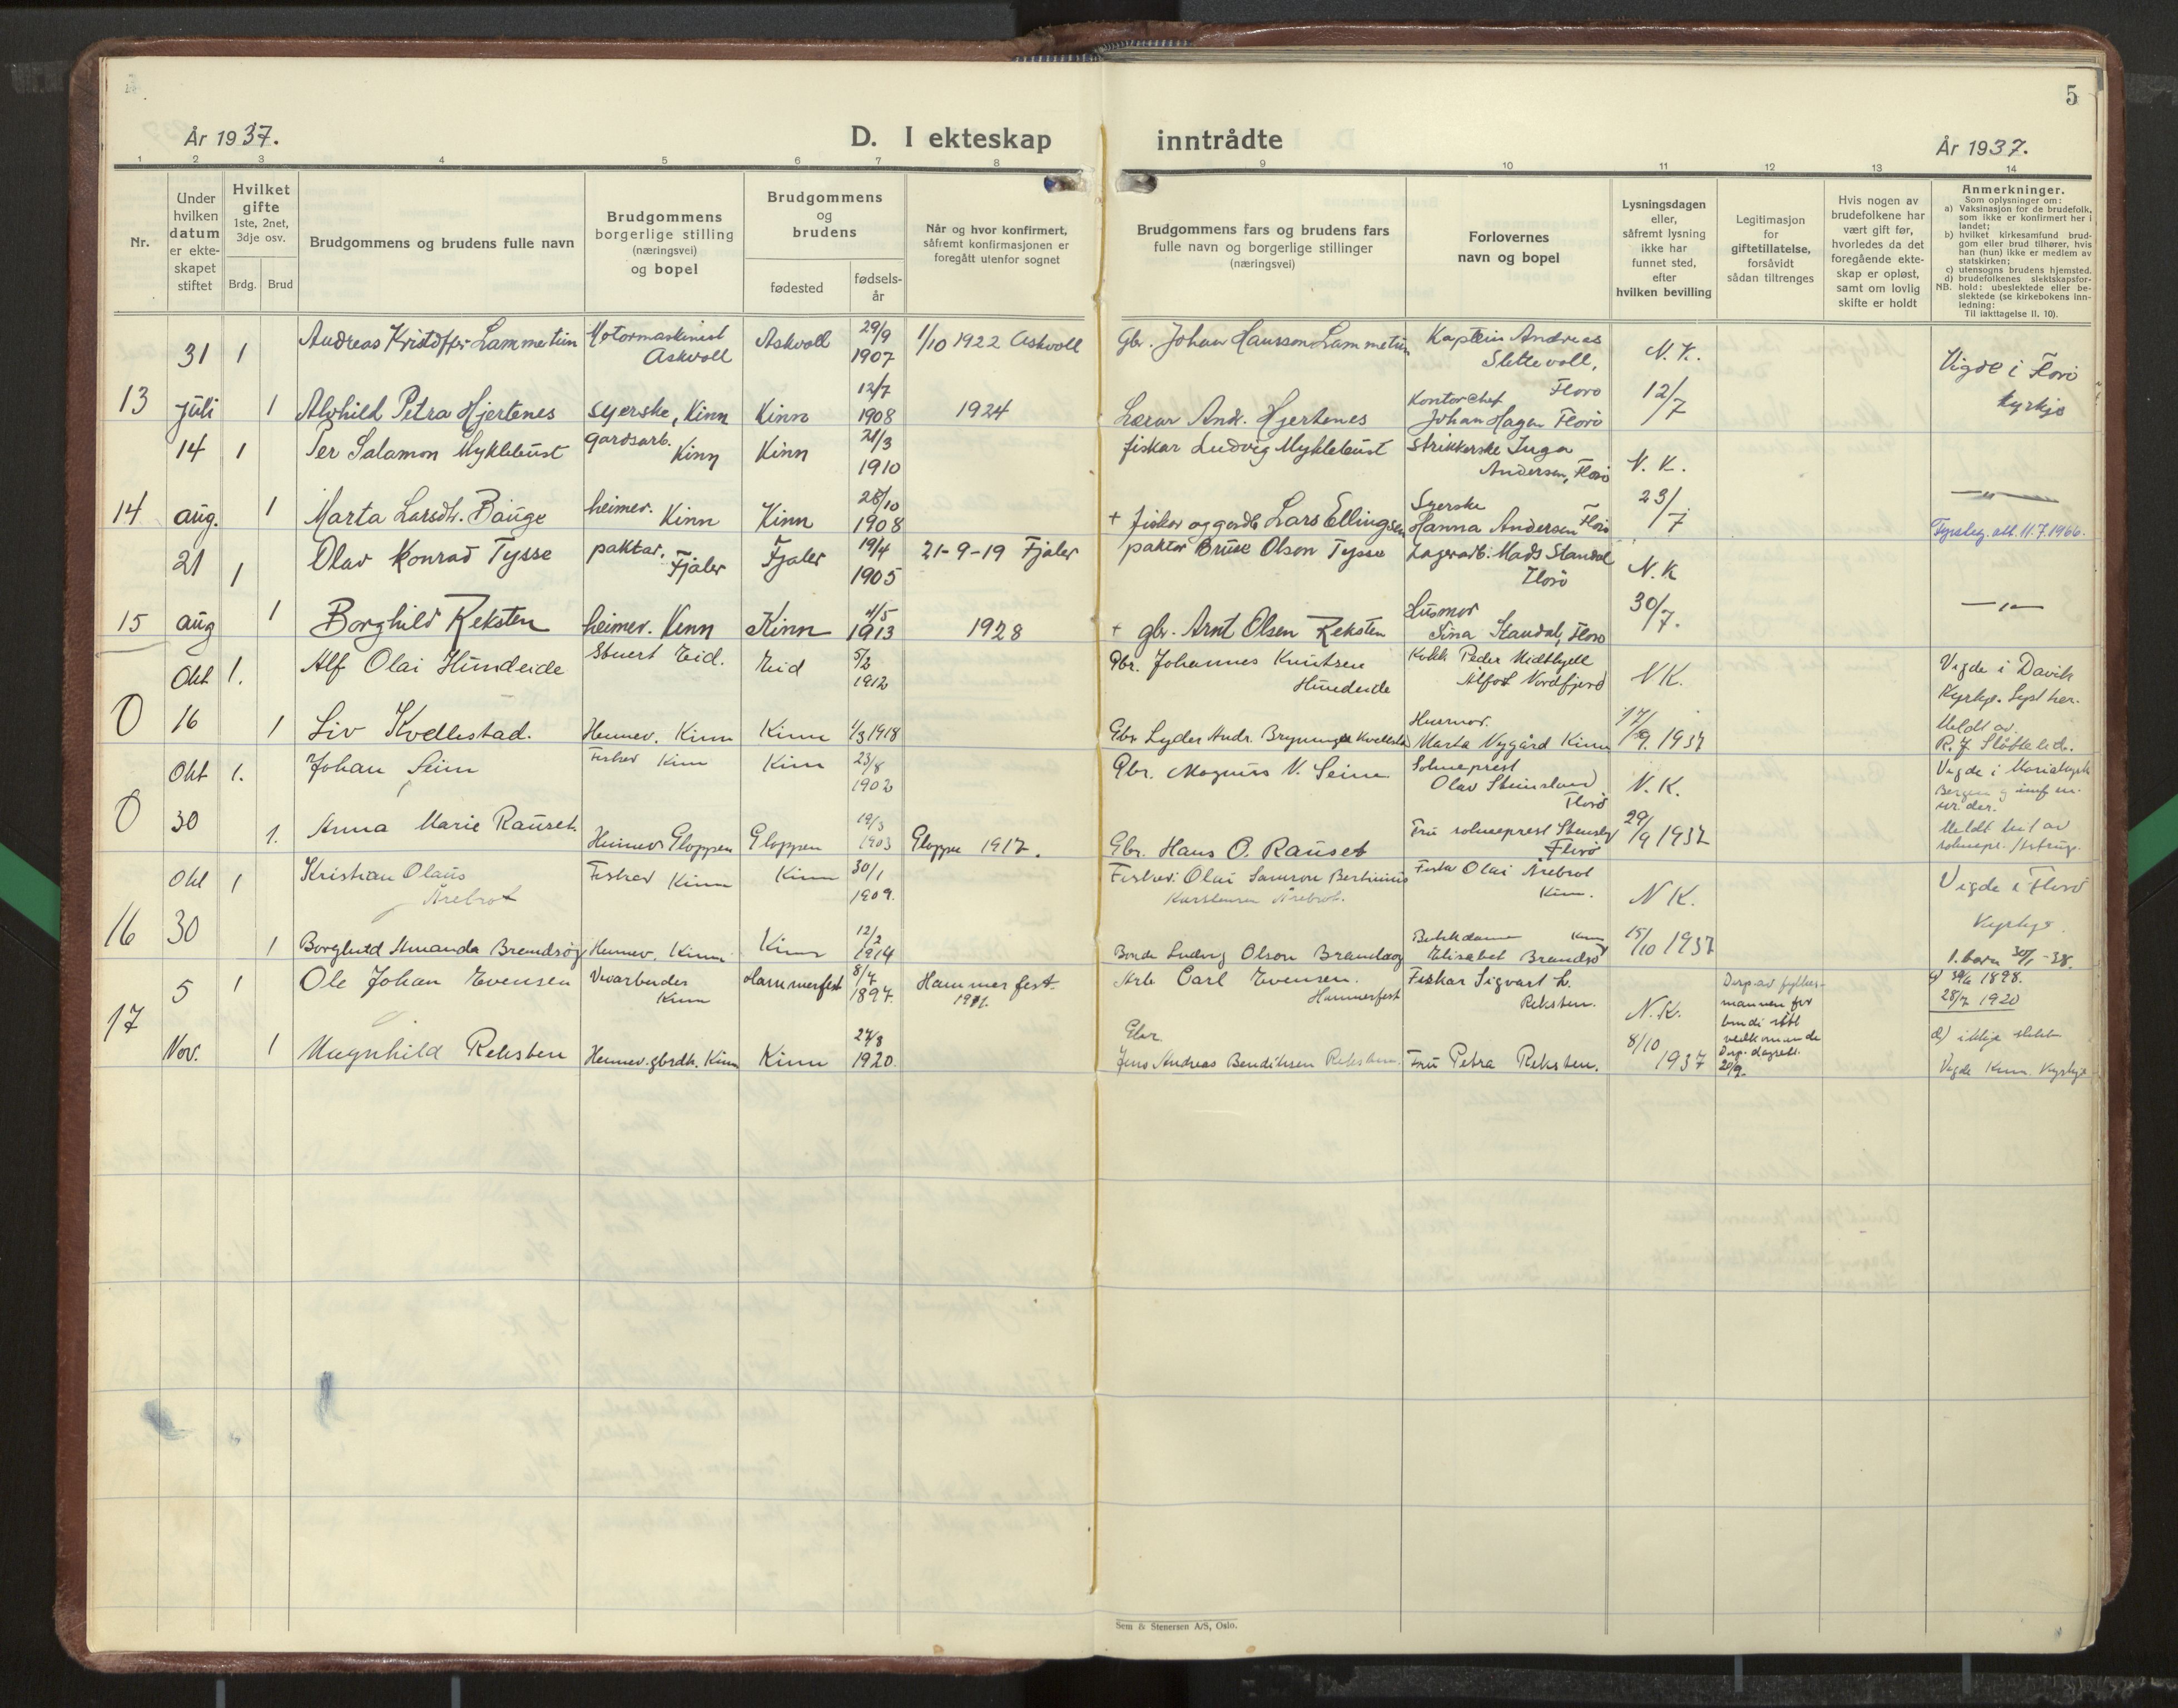 5
År 1937.
D. I ekteskap inntrådte
År 1937.
1 2 3 4 5 6 7 8 9 10 11 12 13 14
Nr.
Under hvilken datum er ekte-skapet stiftet
Hvilket gifte 1ste, 2net, 3dje osv.
Brdg. Brud
Brudgommens og brudens fulle navn
Brudgommens borgerlige stilling (næringsvei) og bopel
Brudgommens og brudens
fødested
fødsels-år
Når og hvor konfirmert, såfremt konfirmasjonen er foregått utenfor sognet
Brudgommens fars og brudens fars fulle navn og borgerlige stillinger (næringsvei)
Forlovernes navn og bopel
Lysningsdagen eller, såfremt lysning ikke har funnet sted, efter hvilken bevilling
Legitimasjon for giftetillatelse, forsåvidt sådan tiltrenges
Hvis nogen av brudefolkene har vært gift før, hvorledes da det foregående ekte-skap er opløst, samt om lovlig skifte er holdt
Anmerkninger.
Som oplysninger om:
a) Vaksinasjon for de brudefolk, som ikke er konfirmert her i landet;
b) hvilket kirkesamfund brud-gom eller brud tilhører, hvis han (hun) ikke er medlem av statskirken;
c) utensogns brudens hjemsted.
d) brudefolkenes slektskapsfor-hold: ubeslektede eller be-slektede (se kirkebokens inn-ledning:
NB.
Til iakttagelse II. 10).
31 1 Andreas Kristoffer Lammetun Motormaskinist Askvoll Askvoll 29/9 1907 1/10 1922 Askvoll Gbr. Johan Hansson Lammetun Kaptein Andreas Slettevoll, Florø N. K. Vigde i Florø kyrkje
13 juli 1 Alvhild Petra Hjertenes syerske, Kinn Kinn 12/7 1908 1924 Lærar And. Hjertenes Kontorchef Johan Hagen Florø 12/7
14 1 Per Salamon Myklebust gardsarb. Kinn Kinn 21/3 1910 fiskar Ludvig Myklebust Strikkerske Inga Andersen, Florø N. K.
14 aug. 1 Marta Larsdtr. Bauge heimev. Kinn Kinn 28/10 1908 + fiskar og gardb Lars Ellingsen Syerske Hanna Andersen Florø 23/7 —"— 11.7.1966.
21 1 Olav Konrad Tysse paktar, Fjaler Fjaler 19/4 1905 21-9-19 Fjaler paktar Brusе Olson Tysse Lagerarb. Mads Standal Florø N. K
15 aug 1 Borghild Reksten heimev. Kinn Kinn 4/5 1913 1928 + gbr. Arnt Olsen Reksten Husmor Sina Standal, Florø 30/7. —"—
Okt 1. Alf Olai Hundeide Stuert Eid. Eid 5/2 1912 Gbr. Johannes Knutsen Hundeide Kokk Peder Midthjell Ålfot Nordfjord N K. Vigde i Davik Kyrkje. Lyst her.
0 16 1 Liv Kvellestad. Heimev. Kinn Kinn 1/3 1918 Gbr Lyder Andr. Kvellestad Husmor. Marta Nygård Kinn 17/9. 1937 Meldt av
Okt 1. Johan Seim Fiskar Kinn Kinn 23/8 1902 Gbr. Magnus N. Seim Sokneprest Olav Steinsland Florø N. K. Vigde i Mariakyrk Bergen
0 30 1. Anna Marie Rauset Heimev Gloppen Gloppen 19/3 1903 Gloppen 1917. Gbr. Hans O. Rauset Fru sokneprest Florø 29/9 1937 Meldt hit av
Okt 1 Kristian Olaus Årebrot Fiskar Kinn Kinn 30/1 1909. Fiskar Olai Samson Bertinius Karstensen Årebrot. Fiskar Olai Årebrot Kinn. N K. Vigde i Florø Kyrkje.
16 30 1 Borghild Amanda Brandsøy Heimev. Kinn Kinn 12/2 1914 Bonde Ludvig Olson Brandsøy Kinn Elisabet Brandsøy 15/10 1937 1. barn 30/1 -38.
5 1 Ole Johan Evensen Vevarbeider Kinn Hammerfest 8/7 1897. Hammerfest. 1911. Arb Carl Evensen. Hammerfest Fiskar Sigvart L. Reksten. N. K. Disp. av fylkes-mannen for 1898. 28/7 1920
17 Nov. 1 Magnhild Reksten Heimev. gbrdtr. Kinn Kinn 27/8 1920. Gbr. Jens Andreas Bendiksen Reksten. Fru Petra Reksten. 8/10 1937 20/9. d) ikkje slekt Vigde Kinn Kyrkje
Sem & Stenersen A/S, Oslo.